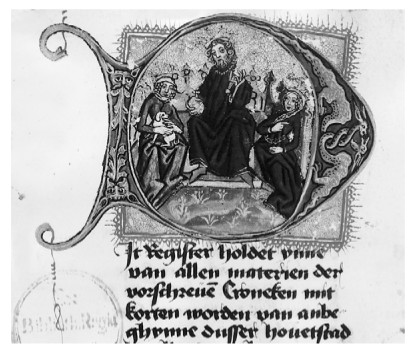 Dit Register holdet ynne
van allen materien der
vorschreuē Croneken mit
korten worden van anbe
ghynne dusser hovetstad
Biblioth. Regia